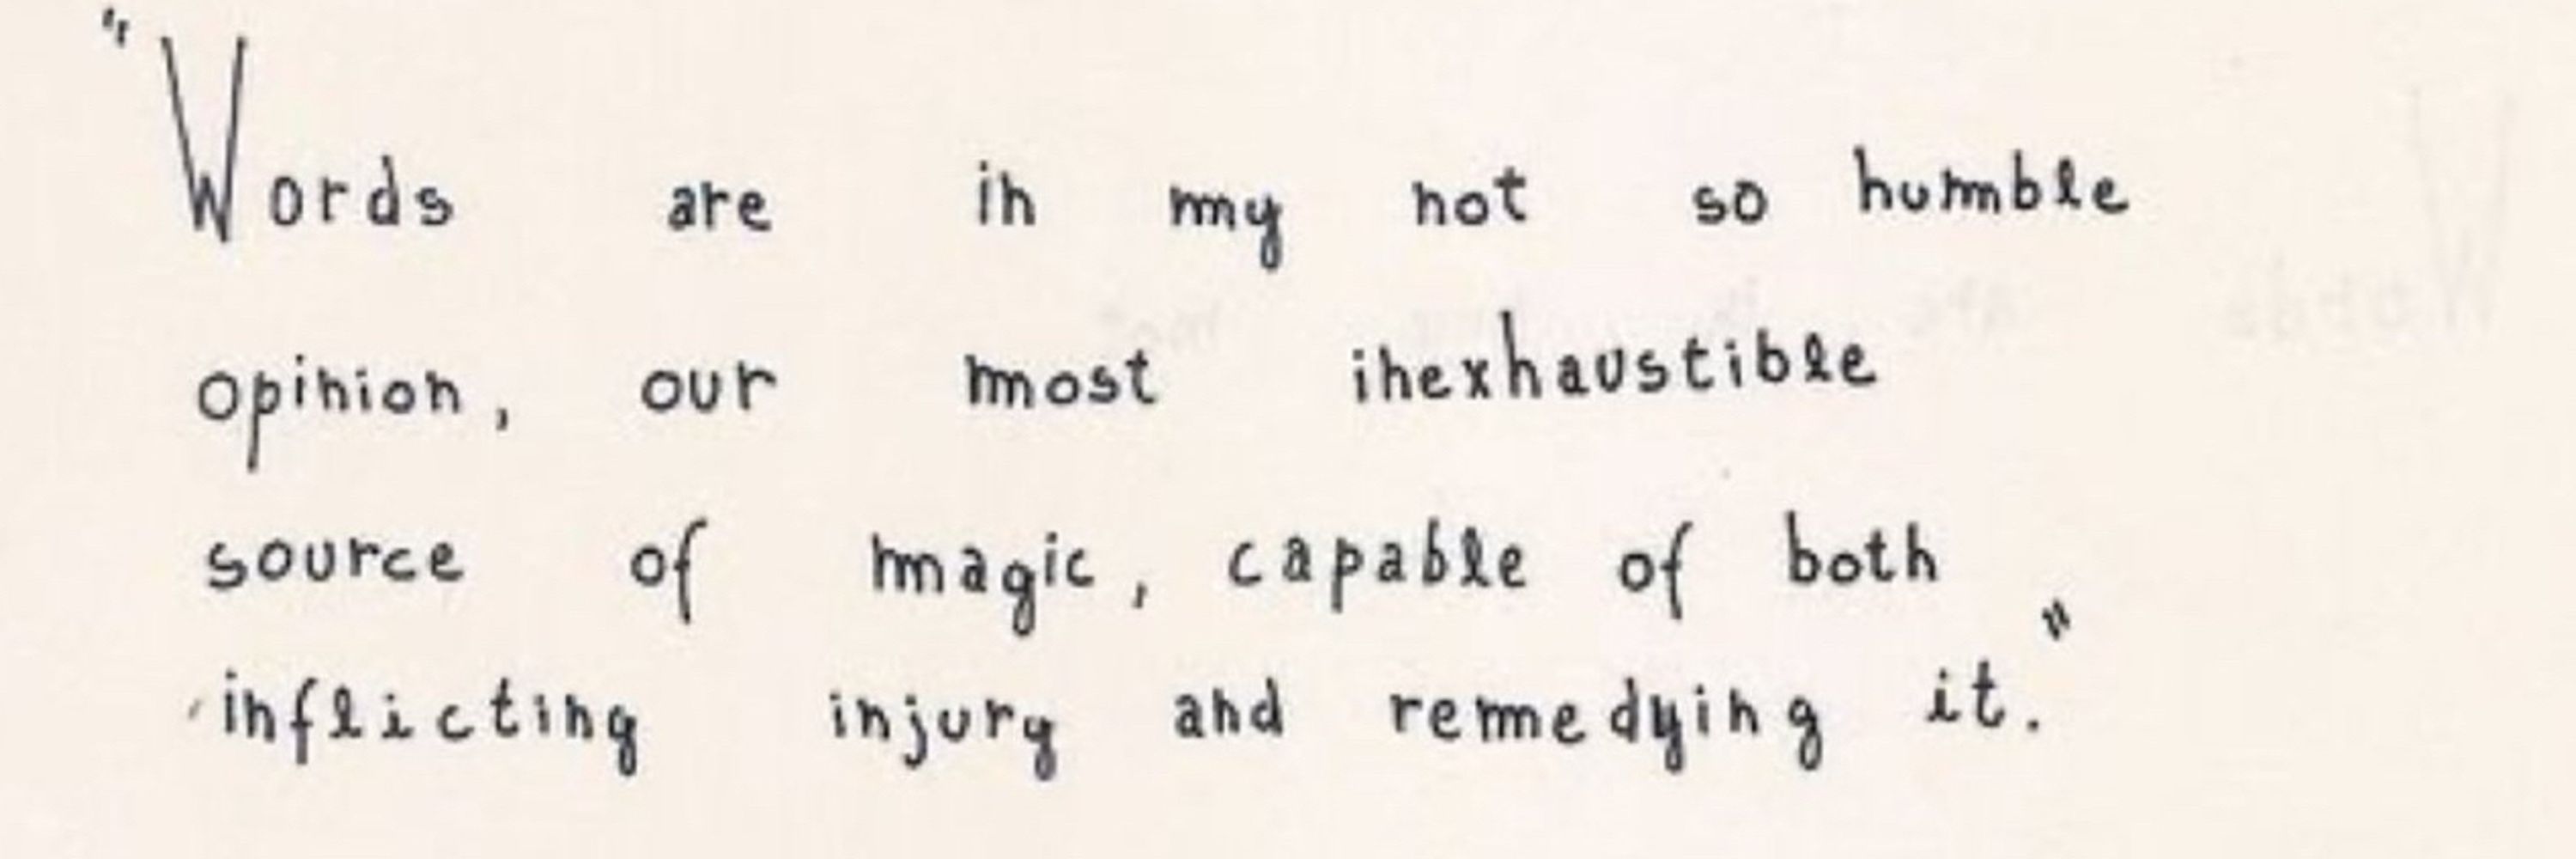 "Words are in my not so humble
opinion, our most inexhaustible
source of magic, capable of both
inflicting injury and remedying it."